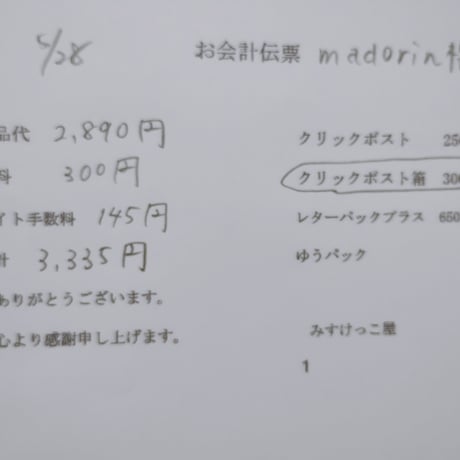 5/28
お会計伝票 madorin様
品代 2,890円
料 300円
イト手数料 145円
計 3,335円
ありがとうございます。
心より感謝申し上げます。
クリックポスト 250
クリックポスト箱 300
レターパックプラス 650
ゆうパック
みすけっこ屋
1